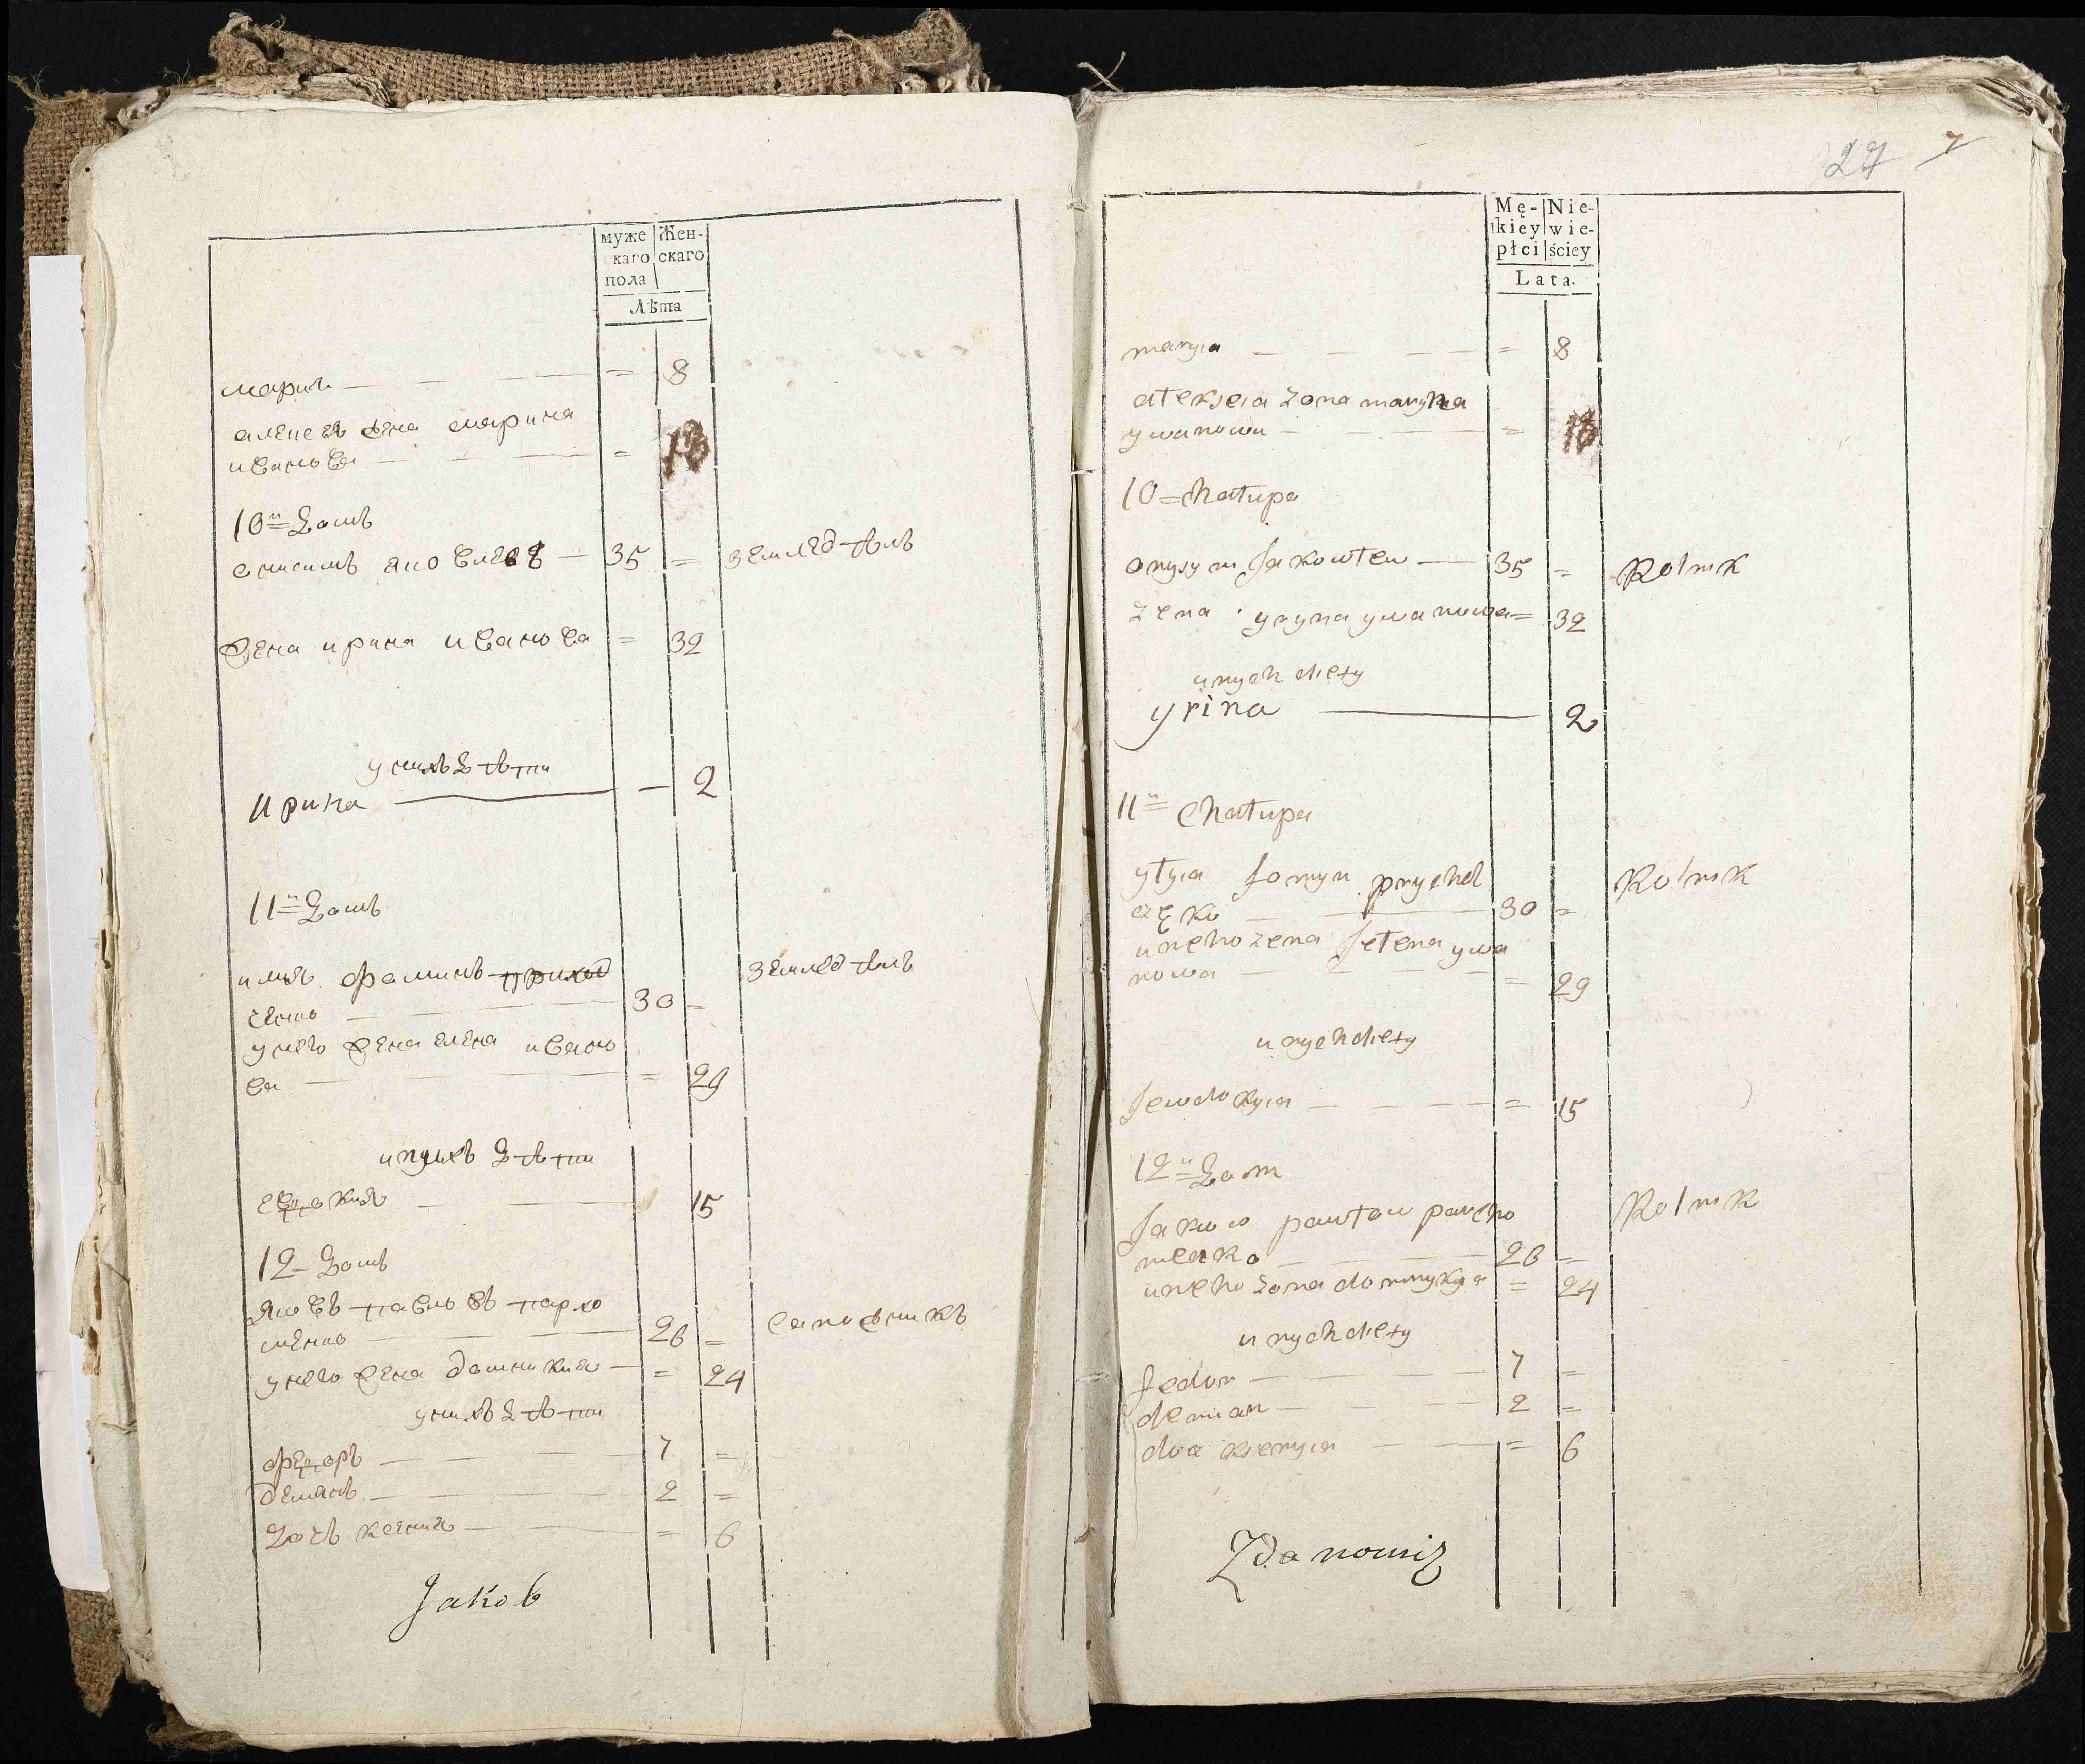 муже
скаго
пола
Жен-
скаго
Лѣта
мария — — — = 8
алексѣя жена марина
иванова — — — = 18
10й домъ
онисимъ яковлевъ — 35 = земледѣлъ
жена ирина иванова = 32
у нихъ дѣти
ирина — — 2
11й домъ
илья фоминъ приход земледѣлъ
ченко — — 30 =
у него жена елена ивано
ва — — = 29
у нихъ дѣти
евдокия — — 15
12 домъ
яковъ павловъ пархо
менко — — 26 = сапожникъ
у него жена домникия — = 24
у нихъ дѣти
федоръ — — 7 =
демянъ — — 2 =
дочь ксения — — = 6
Jakob
27 7
Mę-
skiey
płci
Nie-
wie-
ściey
Lata.
maryia — — — = 8
ałekseia żona maryna
ywanowa — — = 18
10 = Chałupa
onysym Jakowlew — 35 = Rolnik
żena yryna ywanowa = 32
u nych diety
yrina — 2
11й Chałupa
yłyia fomyn prychod Rolnik
częko — — 30 =
u neho żena Jełena ywa
nowa — — = 29
u nych diety
Jewdokyia — — — = 15
12й Dom
Jakow pawłow parcho Rolnik
menko — — 26 =
u neho żona domnykyia = 24
u nych diety
fedor — — 7 =
demian — — 2 =
doc ksenyia — — = 6
Zdanowicz